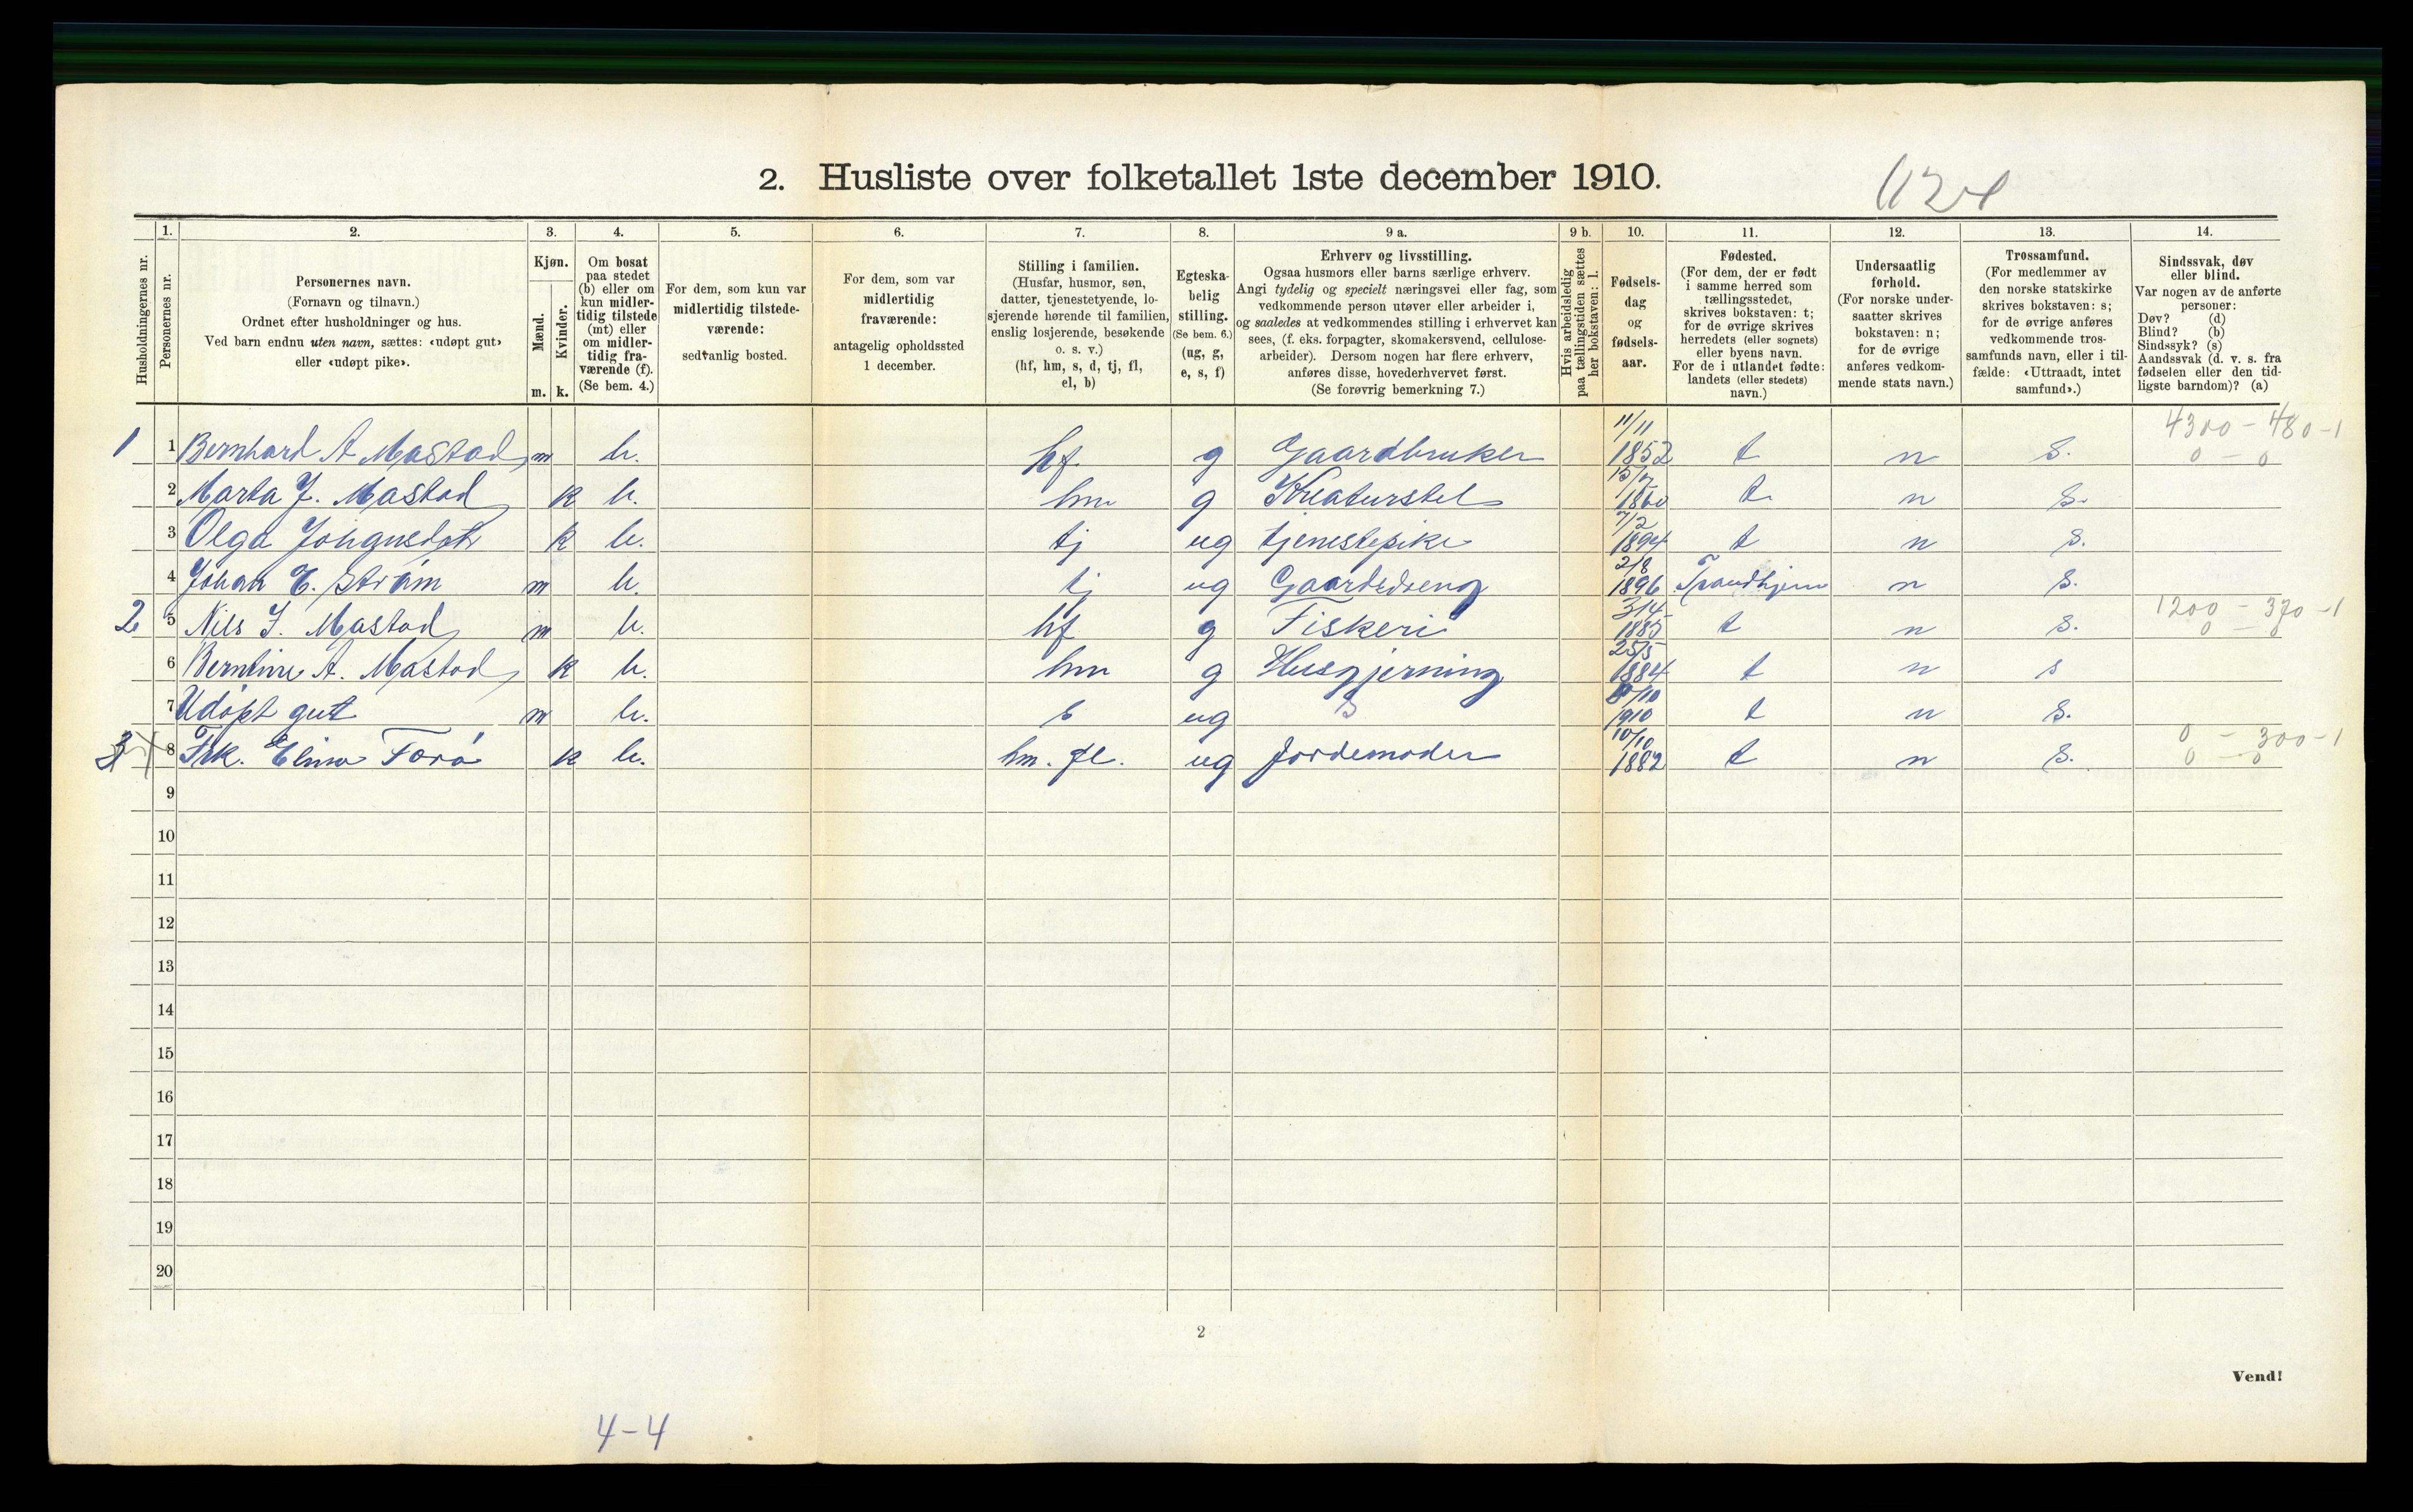 2. Husliste over folketallet 1ste december 1910.
1. 2. 3. 4. 5. 6. 7. 8. 9 a. 9 b. 10. 11. 12. 13. 14.
Husholdningernes nr.
Personernes nr.
Personernes navn.
(Fornavn og tilnavn.)
Ordnet efter husholdninger og hus.
Ved barn endnu uten navn, sættes: «udøpt gut»
eller «udøpt pike».
Kjøn.
Mænd.
Kvinder.
m. k.
Om bosat
paa stedet
(b) eller om
kun midler-
tidig tilstede
(mt) eller
om midler-
tidig fra-
værende (f).
(Se bem. 4.)
For dem, som kun var
midlertidig tilstede-
værende:
sedvanlig bosted.
For dem, som var
midlertidig
fraværende:
antagelig opholdssted
1 december.
Stilling i familien.
(Husfar, husmor, søn,
datter, tjenestetyende, lo-
sjerende hørende til familien,
enslig losjerende, besøkende
o. s. v.)
(hf, hm, s, d, tj, fl,
el, b)
Egteska-
belig
stilling.
(Se bem. 6.)
(ug, g,
e, s, f)
Erhverv og livsstilling.
Ogsaa husmors eller barns særlige erhverv.
Angi tydelig og specielt næringsvei eller fag, som
vedkommende person utøver eller arbeider i,
og saaledes at vedkommendes stilling i erhvervet kan
sees, (f. eks. forpagter, skomakersvend, cellulose-
arbeider). Dersom nogen har flere erhverv,
anføres disse, hovederhvervet først.
(Se forøvrig bemerkning 7.)
Hvis arbeidsledig
paa tællingstiden sættes
her bokstaven: l.
Fødsels-
dag
og
fødsels-
aar.
Fødested.
(For dem, der er født
i samme herred som
tællingsstedet,
skrives bokstaven: t;
for de øvrige skrives
herredets (eller sognets)
eller byens navn.
For de i utlandet fødte:
landets (eller stedets)
navn.)
Undersaatlig
forhold.
(For norske under-
saatter skrives
bokstaven: n;
for de øvrige
anføres vedkom-
mende stats navn.)
Trossamfund.
(For medlemmer av
den norske statskirke
skrives bokstaven: s;
for de øvrige anføres
vedkommende tros-
samfunds navn, eller i til-
fælde: «Uttraadt, intet
samfund».)
Sindssvak, døv
eller blind.
Var nogen av de anførte
personer:
Døv? (d)
Blind? (b)
Sindssyk? (s)
Aandssvak (d. v. s. fra
fødselen eller den tid-
ligste barndom)? (a)
1 1 Bernhard A Mastad m b. hf. g Gaardbruker 11/11 1852 t n s. 4300 – 480 – 1 0 – 0
2 Marta J. Mastad k b. hm g Kreaturstel 1860 t. n s.
3 Olga Johansdatr k b. tj ug tjenestepike 7/2 1894 t n s.
4 Johan E. Strøm m b. tj ug Gaardsdreng 2/8 1896 Trondhjem n s.
2 5 Nils J. Mastad m b. hf g Fiskeri 3/4 1885 t n s. 1200 – 370 – 1 0 – 0
6 Berntine A. Mastad k b. hm g Husgjerning 25/5 1884 t n s
7 Udøpt gut m b. s ug S /10 1910 t n s.
3 8 Frk. Elina Forø k b. hm. fl. ug Jordemoder 10/10 1882 t n s. 0 – 300 – 1 0 – 0
9
10
11
12
13
14
15
16
17
18
19
20
2
Vend!
4 – 4